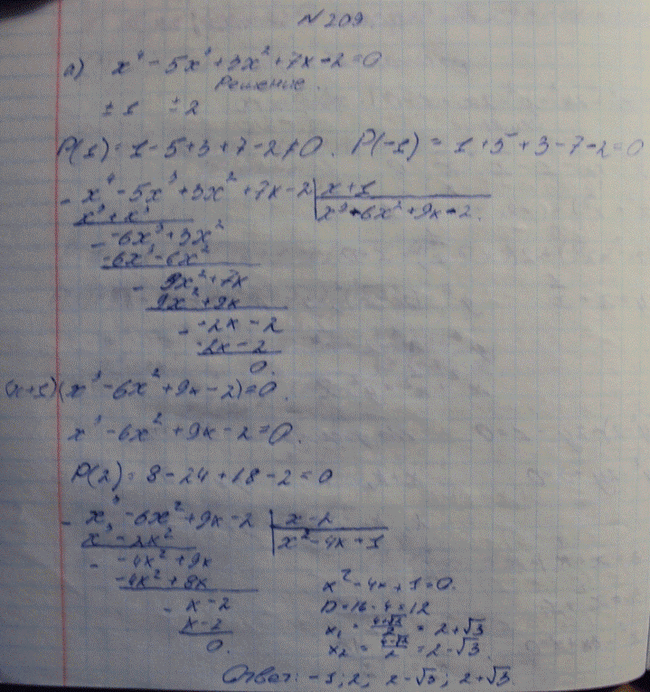 № 209.
а) x⁴ - 5x³ + 3x² + 7x - 2 = 0
Решение.
± 1 ± 2
P(1) = 1 - 5 + 3 + 7 - 2 ≠ 0. P(-1) = 1 + 5 + 3 - 7 - 2 = 0
- x⁴ - 5x³ + 3x² + 7x - 2 | x + 1
x⁴ + x³ | x³ - 6x² + 9x - 2.
- -6x³ + 3x²
-6x³ - 6x²
- 9x² + 7x
9x² + 9x
- -2x - 2
-2x - 2
0.
(x+1)(x³ - 6x² + 9x - 2) = 0.
x³ - 6x² + 9x - 2 = 0.
P(2) = 8 - 24 + 18 - 2 = 0
- x³ - 6x² + 9x - 2 | x - 2
x³ - 2x² | x² - 4x + 1
- -4x² + 9x
-4x² + 8x
- x - 2
x - 2
0.
x² - 4x + 1 = 0.
D = 16 - 4 = 12
x₁ = (4+√12)/2 = 2 + √3
x₂ = (4-√12)/2 = 2 - √3.
Ответ: -1; 2; 2 - √3; 2 + √3.